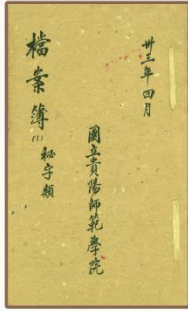 卅三年四月
國立貴陽師範學院
檔案簿(1)秘字類